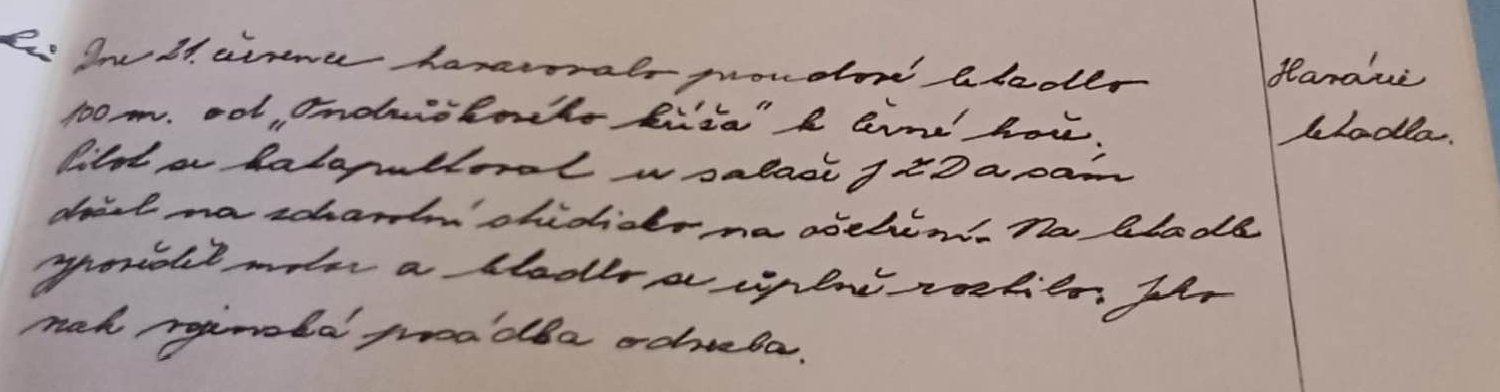 Dne 21. července havarovalo proudové letadlo
Havárie
100 m. od „Ondruškového kříža" k černé hoře.
letadla.
Pilot se katapultoval u salaše JZD a sám
došel na zdravotní středisko na ošetření. Na letadle
vypověděl motor a letadlo se úplně rozbilo. Jeho
vojenská posádka odvezla.